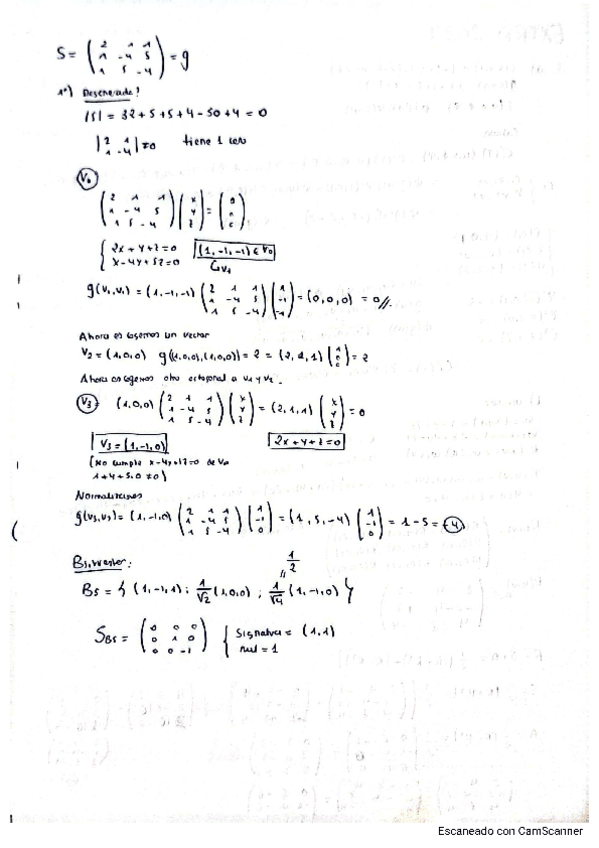 S = ( 2 1 1 ; 1 -4 5 ; 1 5 -4 ) = g
1º) Degenerada?
|S| = 32 + 5 + 5 + 4 - 50 + 4 = 0
| 2 1 ; 1 -4 | ≠ 0 tiene 1 cero
V₀
( 2 1 1 ; 1 -4 5 ; 1 5 -4 ) ( x ; y ; z ) = ( 0 ; 0 ; 0 )
{ 2x + y + z = 0 ; x - 4y + 5z = 0 (1, -1, -1) ∈ V₀
↳ V₁
g(v₁, v₁) = (1, -1, -1) ( 2 1 1 ; 1 -4 5 ; 1 5 -4 ) ( 1 ; -1 ; -1 ) = (0, 0, 0) = 0 //
Ahora escogemos un vector
V₂ = (1,0,0) g((1,0,0),(1,0,0)) = 2 = (2,1,1) ( 1 ; 0 ; 0 ) = 2
Ahora escogemos otro ortogonal a v₁ y v₂.
V₃ = (1,0,0) ( 2 1 1 ; 1 -4 5 ; 1 5 -4 ) ( x ; y ; z ) = (2,1,1) ( x ; y ; z ) = 0
V₃ = (1,-1,0) 2x + y + z = 0
(No cumple x - 4y + 5z = 0 de V₀
1 + 4 + 5·0 ≠ 0)
Normalizamos
g(v₃,v₃) = (1,-1,0) ( 2 1 1 ; 1 -4 5 ; 1 5 -4 ) ( 1 ; -1 ; 0 ) = (1, 5, -4) ( 1 ; -1 ; 0 ) = 1 - 5 = -4
B Sylvester:
1/2
Bs = { (1,-1,1) ; 1/√2 (1,0,0) ; 1/√4 (1,-1,0) }
S_Bs = ( 0 0 0 ; 0 1 0 ; 0 0 -1 ) { Signatura = (1,1) ; nul = 1
Escaneado con CamScanner